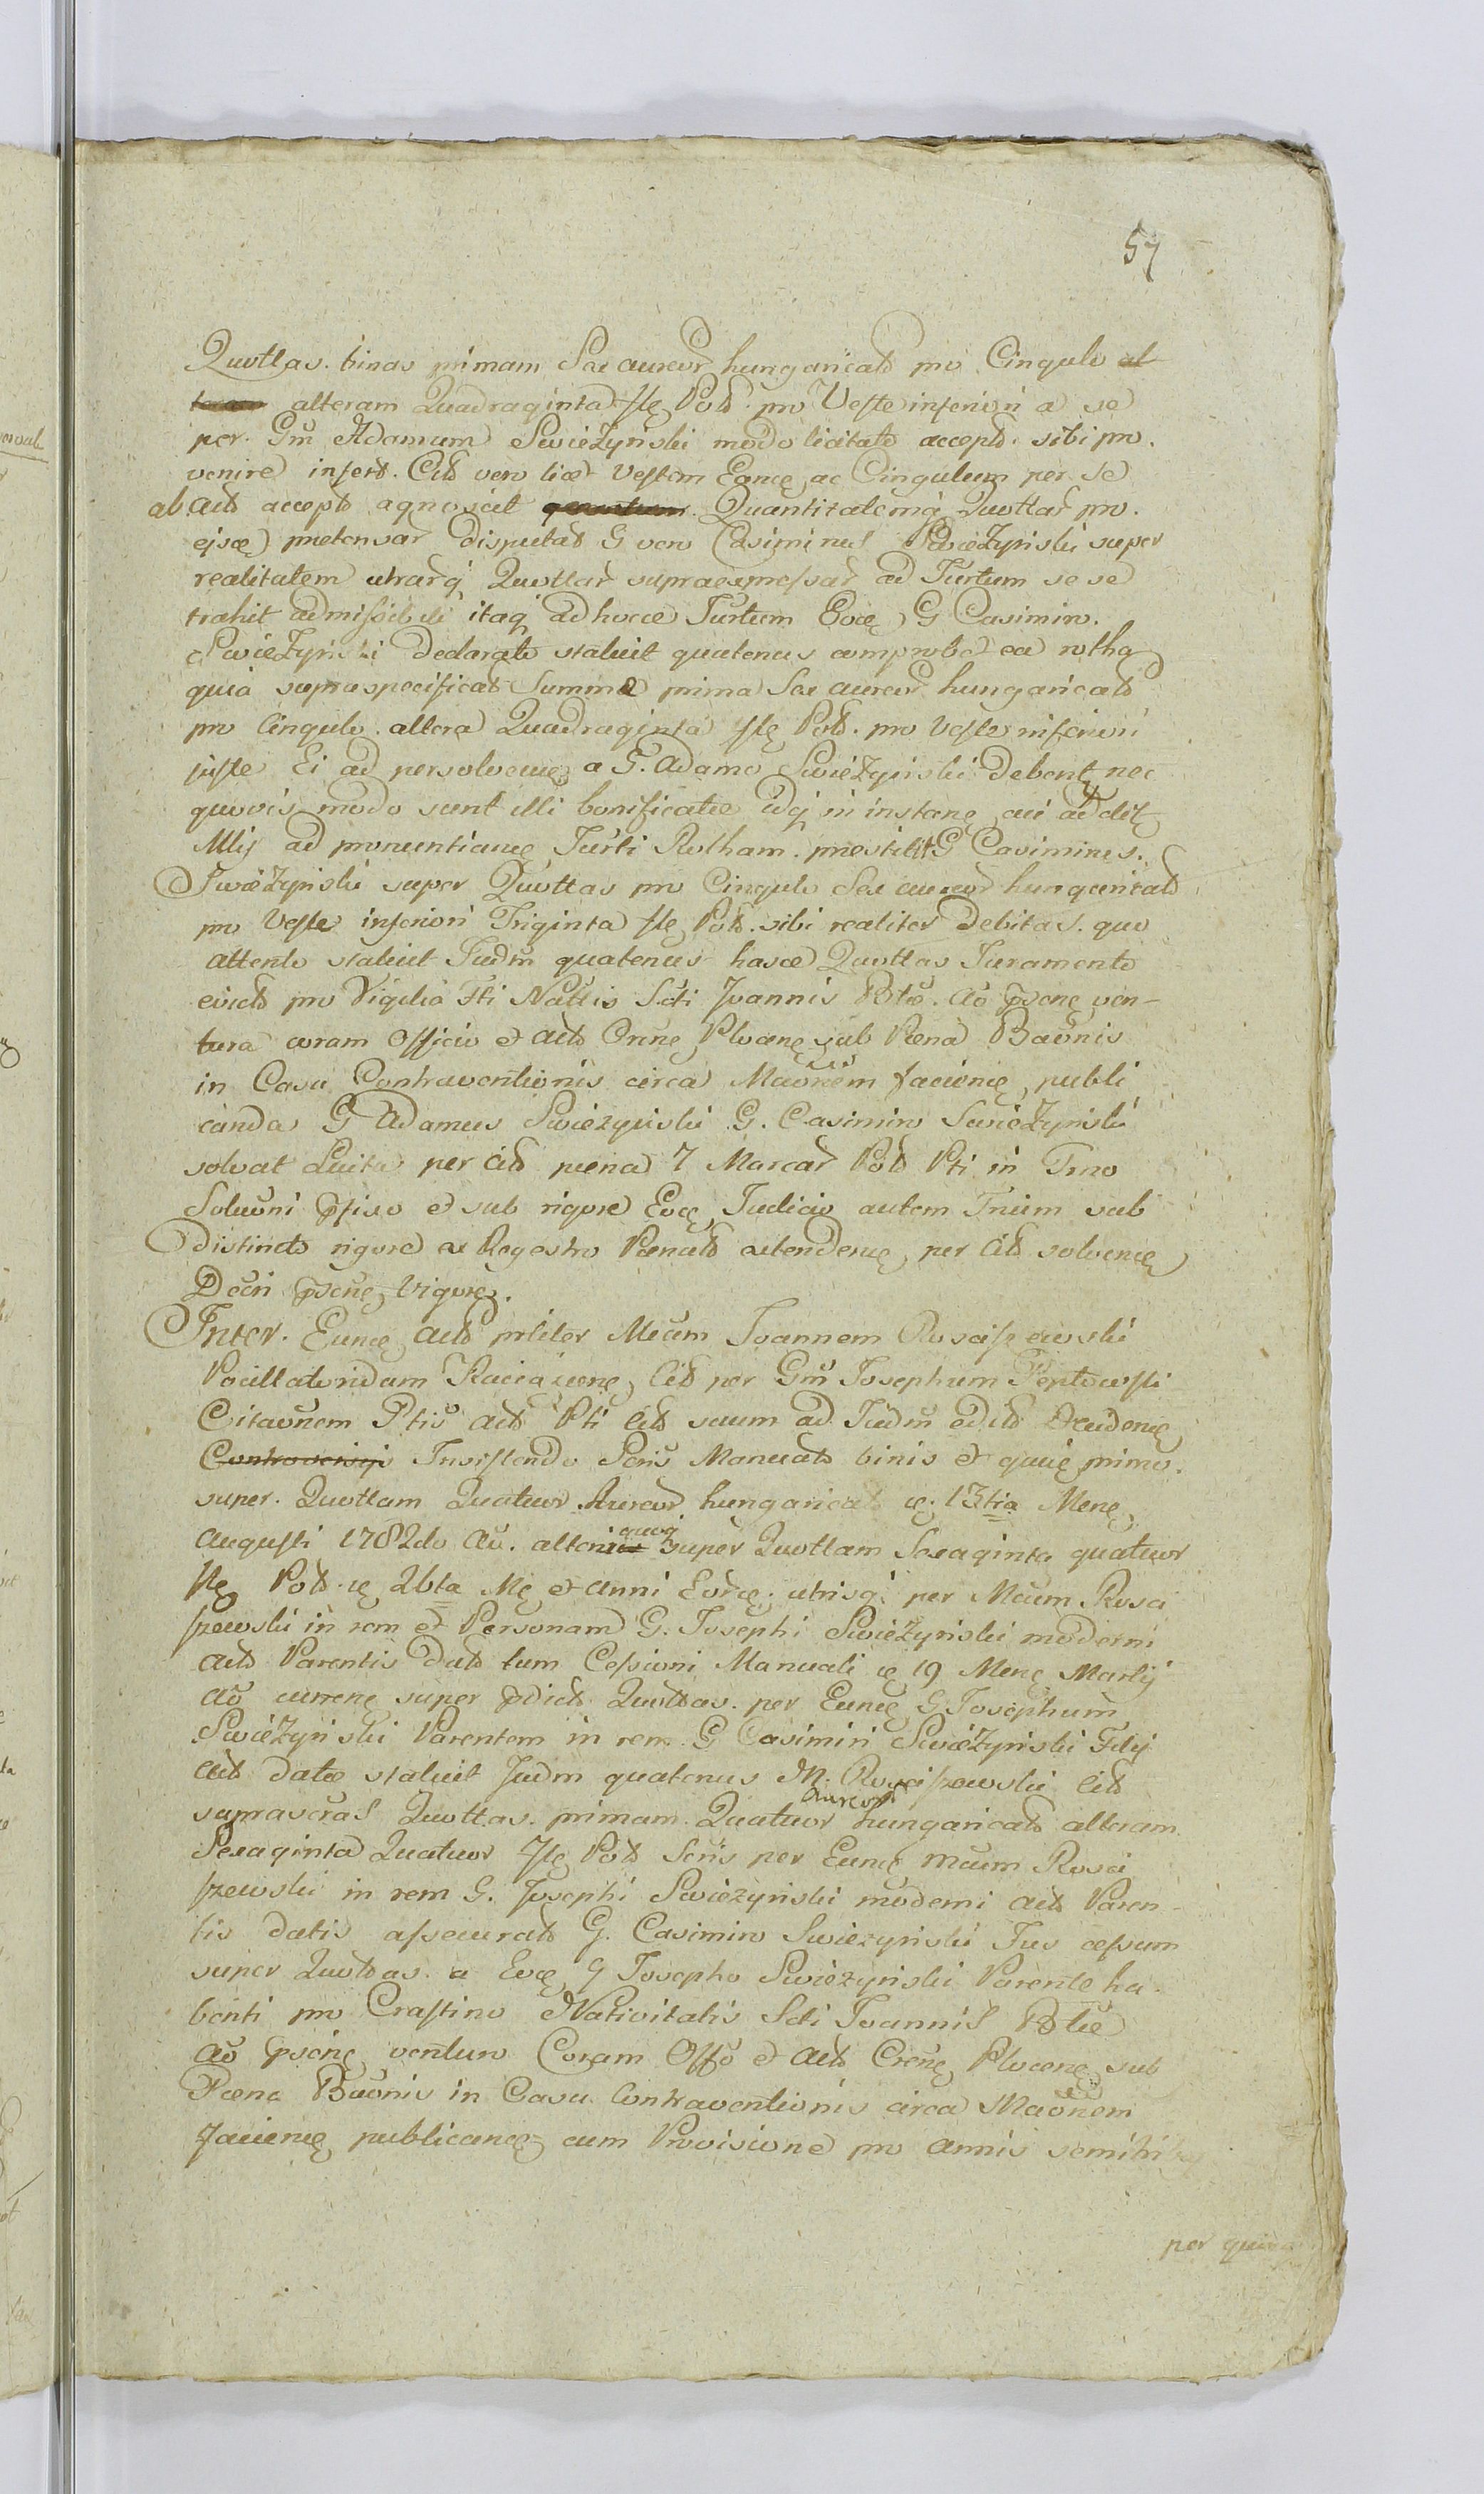 57
Quottas binas primam Sex aureor hungarical pro Cingulo al
alteram Quadraginta fle Pol. pro Veste inferiori a se
per Gm Adamum Swiezynski modo licitato accept. sibi pro.
venire insert. Cit vero licet Vestem Eance ac Cingulum per se
ab Act accept agnoscit Quantitatemq Quottar pro.
ejsce pretensar disputat G vero Casimirus Swiezynski super
realitatem utrarq Quottar supraexpressar ad Jurtum se se
trahit admissibili itaq ad hocce Jurtum Eoce G Casimiro.
Swiezynski declarato statuit quatenus comprobet ea rotha
quia supraspecificat Summa prima Sex aureor hungaricat
pro Cingulo altera Quadraginta fle Pol. pro Veste inferiori
juste Ei ad persolvene a G. Adamo Swiezynski debent nec
quovis modo sunt illi bonificatae idq in instane cui addit
Mlij ad pronuntiane Jurti Rotham. prestitit G Casimirus.
Swiezynski super Quottas pro Cingulo Sex aureor hungaricat
pro Veste inferiori Triginta fle Pol. sibi realiter debitas. quo
attento statuit Judm quatenus hasce Quottas Juramento
evict pro Vigilia Fti Nattis Scti Joannis Btae. Ao psene ven-
tura coram Officio et Act Crne Plocene sub Paena Baonis
in Casu Contraventionis circa Maonem faciene publi
canda G Adamus Swiezynski G. Casimiro Swiezynski
solvat Luita per Cit paena 7 Marcar Pol Pti in Tmo
Soluoni pfixo et sub rigore Eoce Judicio autem Trium sub
distincto rigore ex Regestro Paenal extendene per Cit solvene
Decri psene vigore.
Inter. Eunce Act pnliter Mcum Joannem Rosciszewski
Pocillatoridam Raciazene Cit per Gm Josephum
Citaonem Ptis Act Pti Cit suum ad Judm edit
Controversijs Insistendo Scris Manual binis et quie primo.
super. Quottam Quatuor Aureor hungarical ie. 13tia Mene
Augusti 1782do Ao. altori quoq super Quottam Sexaginta quatuor
fle Pol. ie 26ta Me et anni Eorce. utrisq per Mcum Rosci
szewski in rem et Personam G. Josephi Swiezynski moderni
Act Parentis dat tum Cessioni Manuali ie 19 Mene Martij
Ao currene super pdict Quottas. per Eunce G Josephum
Swiezynski Parentem in rem G Casimiri Swiezynski Filij
Act datae statuit Judm quatenus M. Rosciszewski Cit
suprascras Quottas. primam. Quatuor Aureor hungaricat alteram
Sexaginta Quatuor fle Pol Scris per Eunce Mcum Rosci
szewski in rem G. Josephi Swiezynski moderni Act Paren-
tis datis assecurat G. Casimiro Swiezynski Jus cessum
super Quottas. a Eoce G Josepho Swiezynski Parente ha.
benti pro Crastino Nativitatis Scti Joannis Btae
Ao psene venturo Coram Offo et Act Crene Plocene sub
Paena Baonis in Casu Contraventionis circa Maonem
faciene publicane cum Provisione pro annis semitri
per